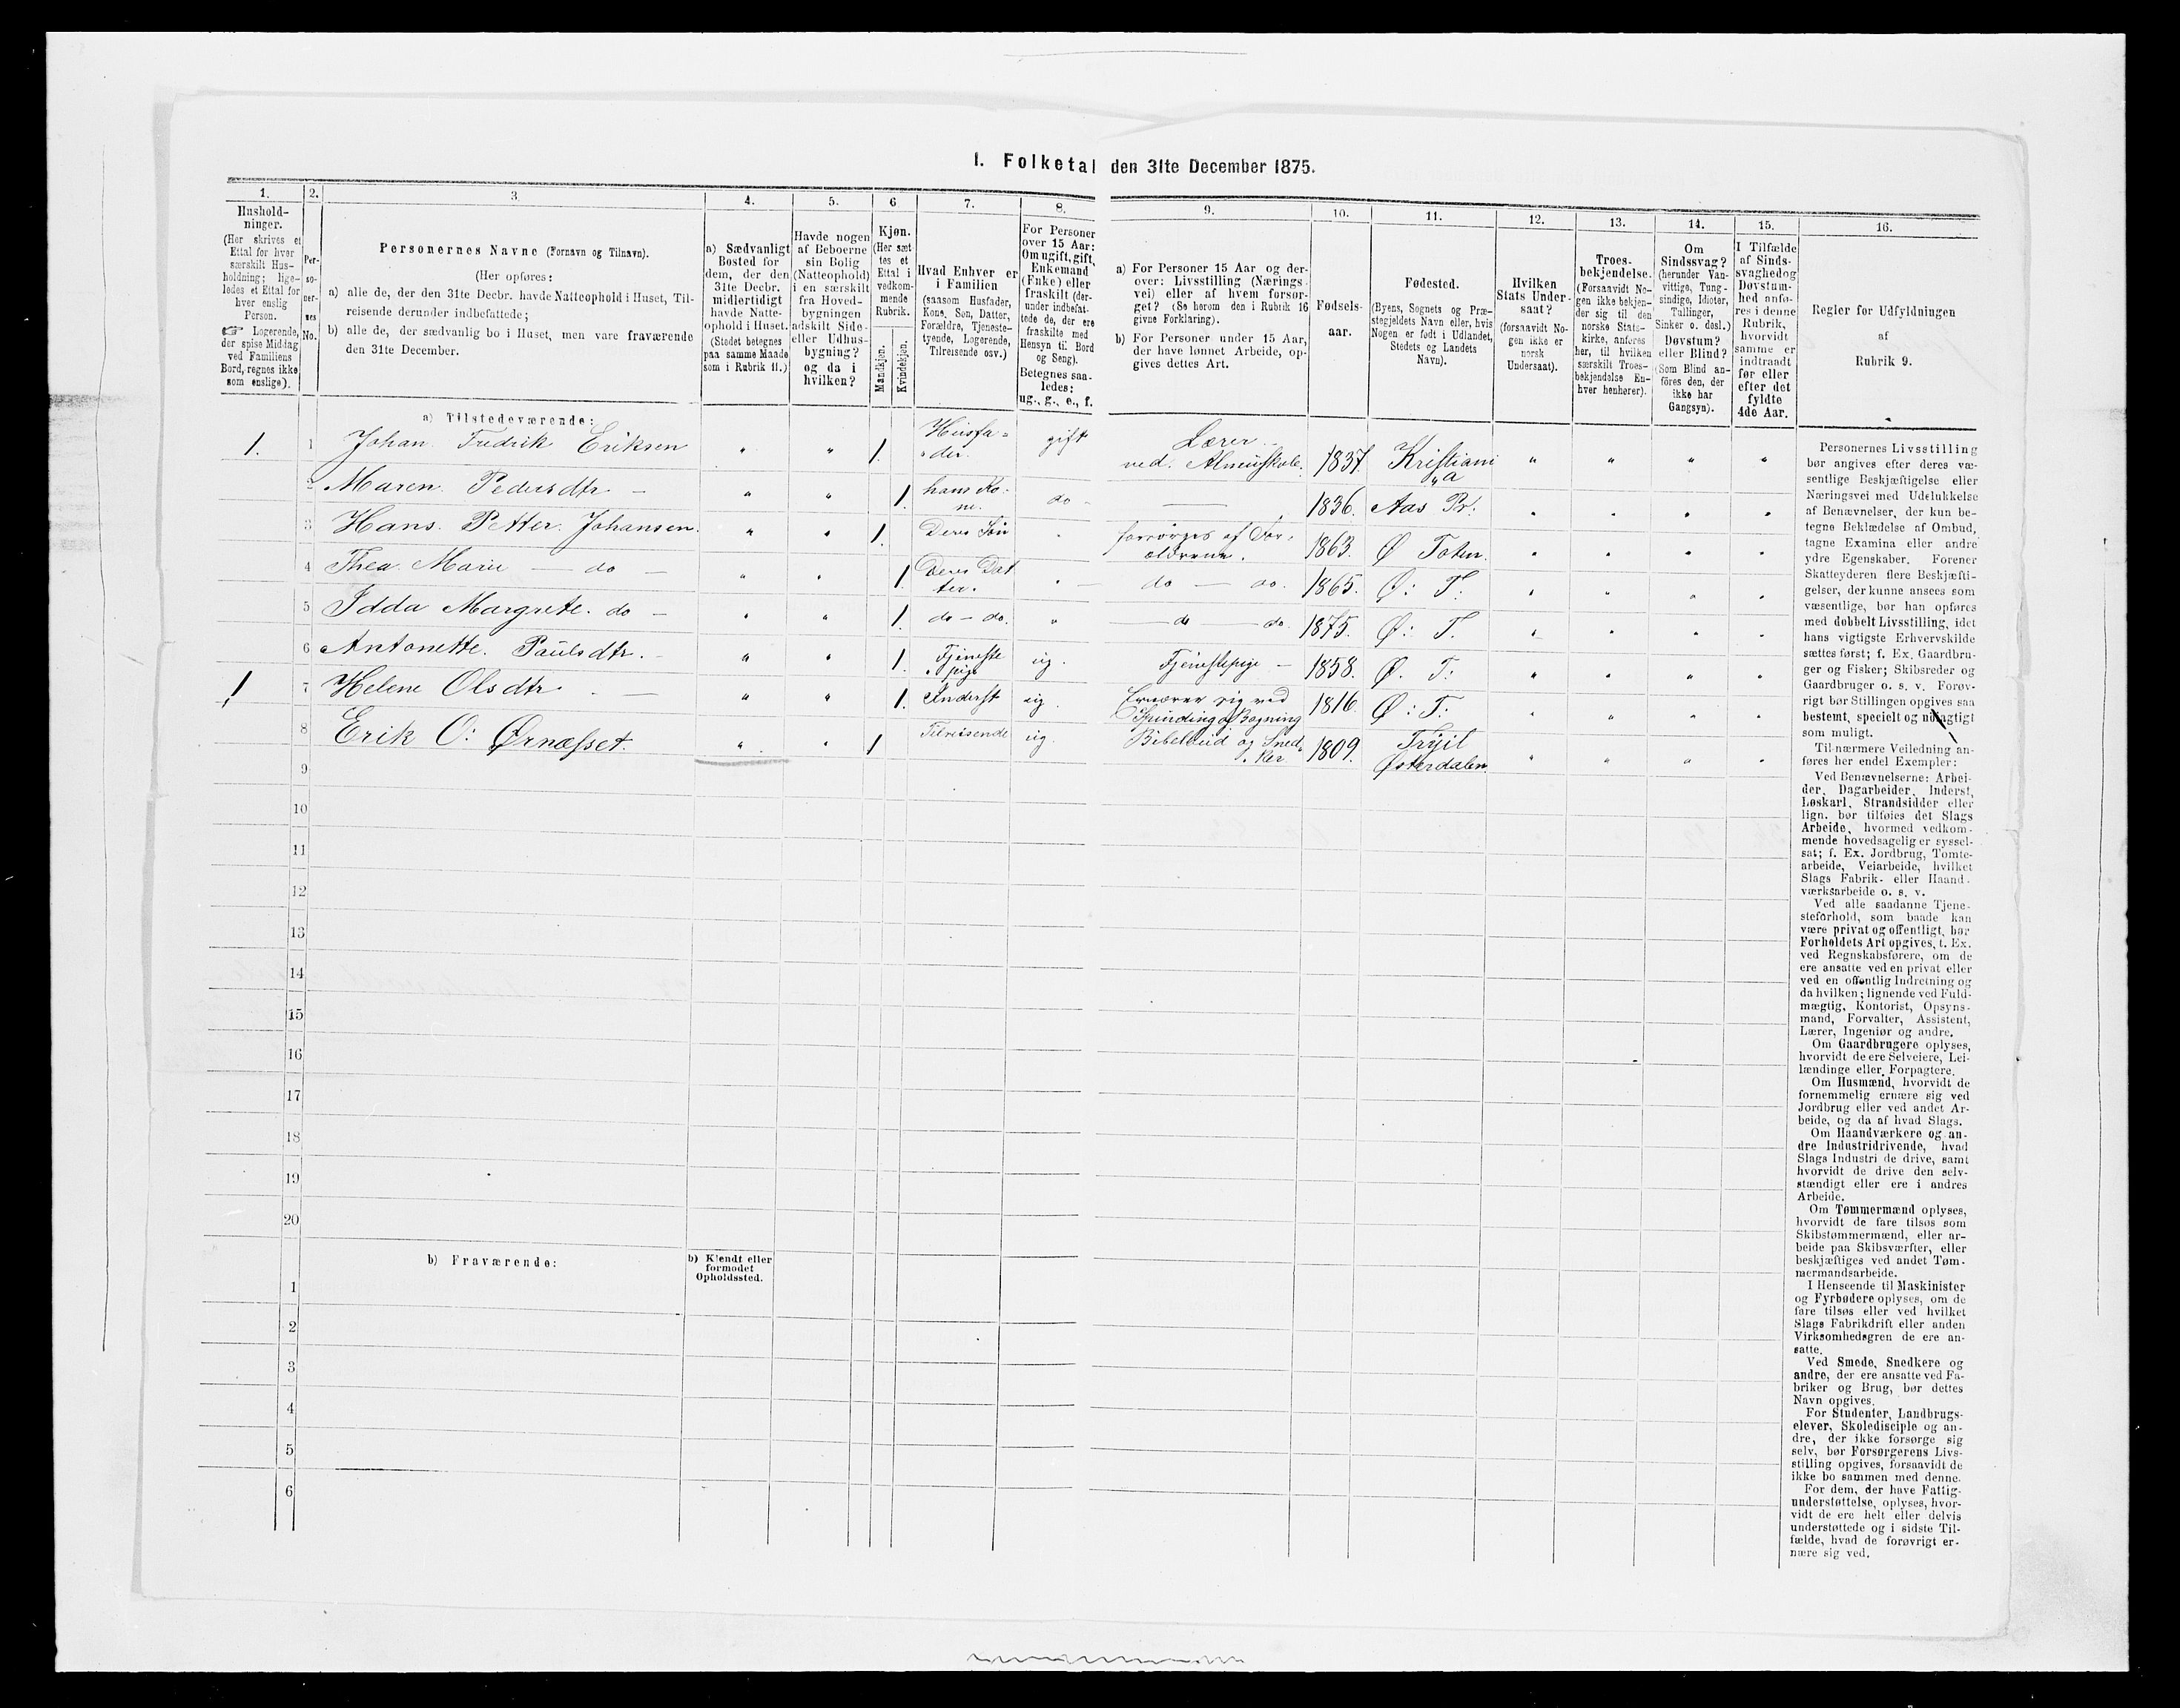 I. Folketal den 31te December 1875.
1.
Hushold-
ninger.
(Her skrives et
Ettal for hver
særskilt Hus-
holdning; lige-
ledes et Ettal for
hver enslig
Person.
☞ Logerende,
der spise Middag
ved Familiens
Bord, regnes ikke
som enslige).
2.
Per-
so-
ner-
nes
No.
3.
Personernes Navne (Fornavn og Tilnavn).
(Her opføres:
a) alle de, der den 31te Decbr. havde Natteophold i Huset, Til-
reisende derunder indbefattede;
b) alle de, der sædvanlig bo i Huset, men vare fraværende
den 31te December.
4.
a) Sædvanligt
Bosted for
dem, der den
31te Decbr.
midlertidigt
havde Natte-
ophold i Huset.
(Stedet betegnes
paa samme Maade
som i Rubrik 11.)
5.
Havde nogen
af Beboerne
sin Bolig
(Natteophold)
i en særskilt
fra Hoved-
bygningen
adskilt Side-
eller Udhus-
bygning?
og da i
hvilken?
6
Kjøn.
(Her sæt-
tes et
Ettal i
vedkom-
mende
Rubrik.
Mandkjøn.
Kvindekjøn.
7.
Hvad Enhver er
i Familien
(saasom Husfader,
Kone, Søn, Datter,
Forældre, Tjeneste-
tyende, Logerende,
Tilreisende osv.)
8.
For Personer
over 15 Aar:
Om ugift, gift,
Enkemand
(Enke) eller
fraskilt (der-
under indbefat-
tede de, der ere
fraskilte med
Hensyn til Bord
og Seng).
Betegnes saa-
ledes:
ug., g., e., f.
9.
a) For Personer 15 Aar og der-
over: Livsstilling (Nærings-
vei) eller af hvem forsør-
get? (Se herom den i Rubrik 16
givne Forklaring).
b) For Personer under 15 Aar,
der have lønnet Arbeide, op-
gives dettes Art.
10.
Fødsels-
aar.
11.
Fødested.
(Byens, Sognets og Præ-
stegjeldets Navn eller, hvis
Nogen er født i Udlandet,
Stedets og Landets
Navn).
12.
Hvilken
Stats Under-
saat?
(forsaavidt No-
gen ikke er
norsk
Undersaat).
13.
Troes-
bekjendelse.
(Forsaavidt No-
gen ikke bekjen-
der sig til den
norske Stats-
kirke, anføres
her, til hvilken
særskilt Troes-
bekjendelse En-
hver henhører).
14.
Om
Sindssvag?
(herunder Van-
vittige, Tung-
sindige, Idioter,
Tullinger,
Sinker o. desl.)
Døvstum?
eller Blind?
(Som Blind an-
føres den, der
ikke har
Gangsyn).
15.
I Tilfælde
af Sinds-
svaghed og
Døvstum-
hed anfø-
res i denne
Rubrik,
hvorvidt
samme er
indtraadt
før eller
efter det
fyldte
4de Aar.
16.
Regler for Udfyldningen
af
Rubrik 9.
a) Tilstedeværende:
1. 1 Johan Fredrik Eriksen " " 1. Husfa= gift Lærer 1837. Kristiani " " " "
"der. ved. Almuskole. "a
2 Maren. Pedersdtr — " " 1. hans Ko- do - — 1836. Aas Pr. " " " "
ne.
3 Hans. Petter. Johansen. " " 1. Deres Søn " forsørges af For- 1863. Ø Toten. " " " "
ældrene.
4 Thea. Marie — do — " " 1 Deres Dat " — do — do. 1865. Ø: T: " " " "
ter.
5 Idda Margrete. do — " " 1. do — do. " — do — do. 1875. Ø: T. " " " "
6 Antonette. Paulsdtr. — " " 1. Tjeneste ug. Tjenestepige — 1858. Ø. T: " " " "
pige
1 7 Helene Olsdtr — " " 1. Inderst ug. Ernærer sig ved 1816. Ø: T: " " " "
Spinding & Bagning
8 Erik O: Ørnæsset. " " 1 Tilreisende ug. Bibelbud og Sned= 1809. Trysil " " " "
ker Østerdalen
9
10
11
12
13
14
15
16
17
18
19
20
b) Fraværende:
b) Kjendt eller
formodet
Opholdssted.
1
2
3
4
5
6
Personernes Livsstilling
bør angives efter deres væ-
sentlige Beskjæftigelse eller
Næringsvei med Udelukkelse
af Benævnelser, der kun be-
tegne Beklædelse af Ombud,
tagne Examina eller andre
ydre Egenskaber. Forener
Skatteyderen flere Beskjæfti-
gelser, der kunne ansees som
væsentlige, bør han opføres
med dobbelt Livsstilling, idet
hans vigtigste Erhvervskilde
sættes først; f. Ex. Gaardbru-
ger og Fisker; Skibsreder og
Gaardbruger o. s. v. Forøv-
rigt bør Stillingen opgives saa
bestemt, specielt og nøiagtigt
som muligt.
Til nærmere Veiledning an-
føres her endel Exempler:
Ved Benævnelserne: Arbei-
der, Dagarbeider, Inderst,
Løskarl, Strandsidder eller
lign. bør tilføies det Slags
Arbeide, hvormed vedkom-
mende hovedsagelig er syssel-
sat; f. Ex. Jordbrug, Tomte-
arbeide, Veiarbeide, hvilket
Slags Fabrik- eller Haand-
værksarbeide o. s. v.
Ved alle saadanne Tjene-
steforhold, som baade kan
være privat og offentligt, bør
Forholdets Art opgives, t. Ex.
ved Regnskabsførere, om de
ere ansatte ved en privat eller
ved en offentlig Indretning og
da hvilken; lignende ved Fuld-
mægtig, Kontorist, Opsyns-
mand, Forvalter, Assistent,
Lærer, Ingeniør og andre.
Om Gaardbrugere oplyses,
hvorvidt de ere Selveiere, Lei-
lændinge eller Forpagtere.
Om Husmænd, hvorvidt de
fornemmelig ernære sig ved
Jordbrug eller ved andet Ar-
beide, og da af hvad Slags.
Om Haandværkere og an-
dre Industridrivende, hvad
Slags Industri de drive, samt
hvorvidt de drive den selv-
stændigt eller ere i andres
Arbeide.
Om Tømmermænd oplyses,
hvorvidt de fare tilsøs som
Skibstømmermænd, eller ar-
beide paa Skibsværfter, eller
beskjæftiges ved andet Tøm-
mermandsarbeide.
I Henseende til Maskinister
og Fyrbødere oplyses, om de
fare tilsøs eller ved hvilket
Slags Fabrikdrift eller anden
Virksomhedsgren de ere an-
satte.
Ved Smede, Snedkere og
andre, der ere ansatte ved Fa-
briker og Brug, bør dettes
Navn opgives.
For Studenter, Landbrugs-
elever, Skoledisciple og an-
dre, der ikke forsørge sig
selv, bør Forsørgerens Livs-
stilling opgives, forsaavidt de
ikke bo sammen med denne.
For dem, der have Fattig-
understøttelse, oplyses, hvor-
vidt de ere helt eller delvis
understøttede og i sidste Til-
fælde, hvad de forøvrigt er-
nære sig ved.